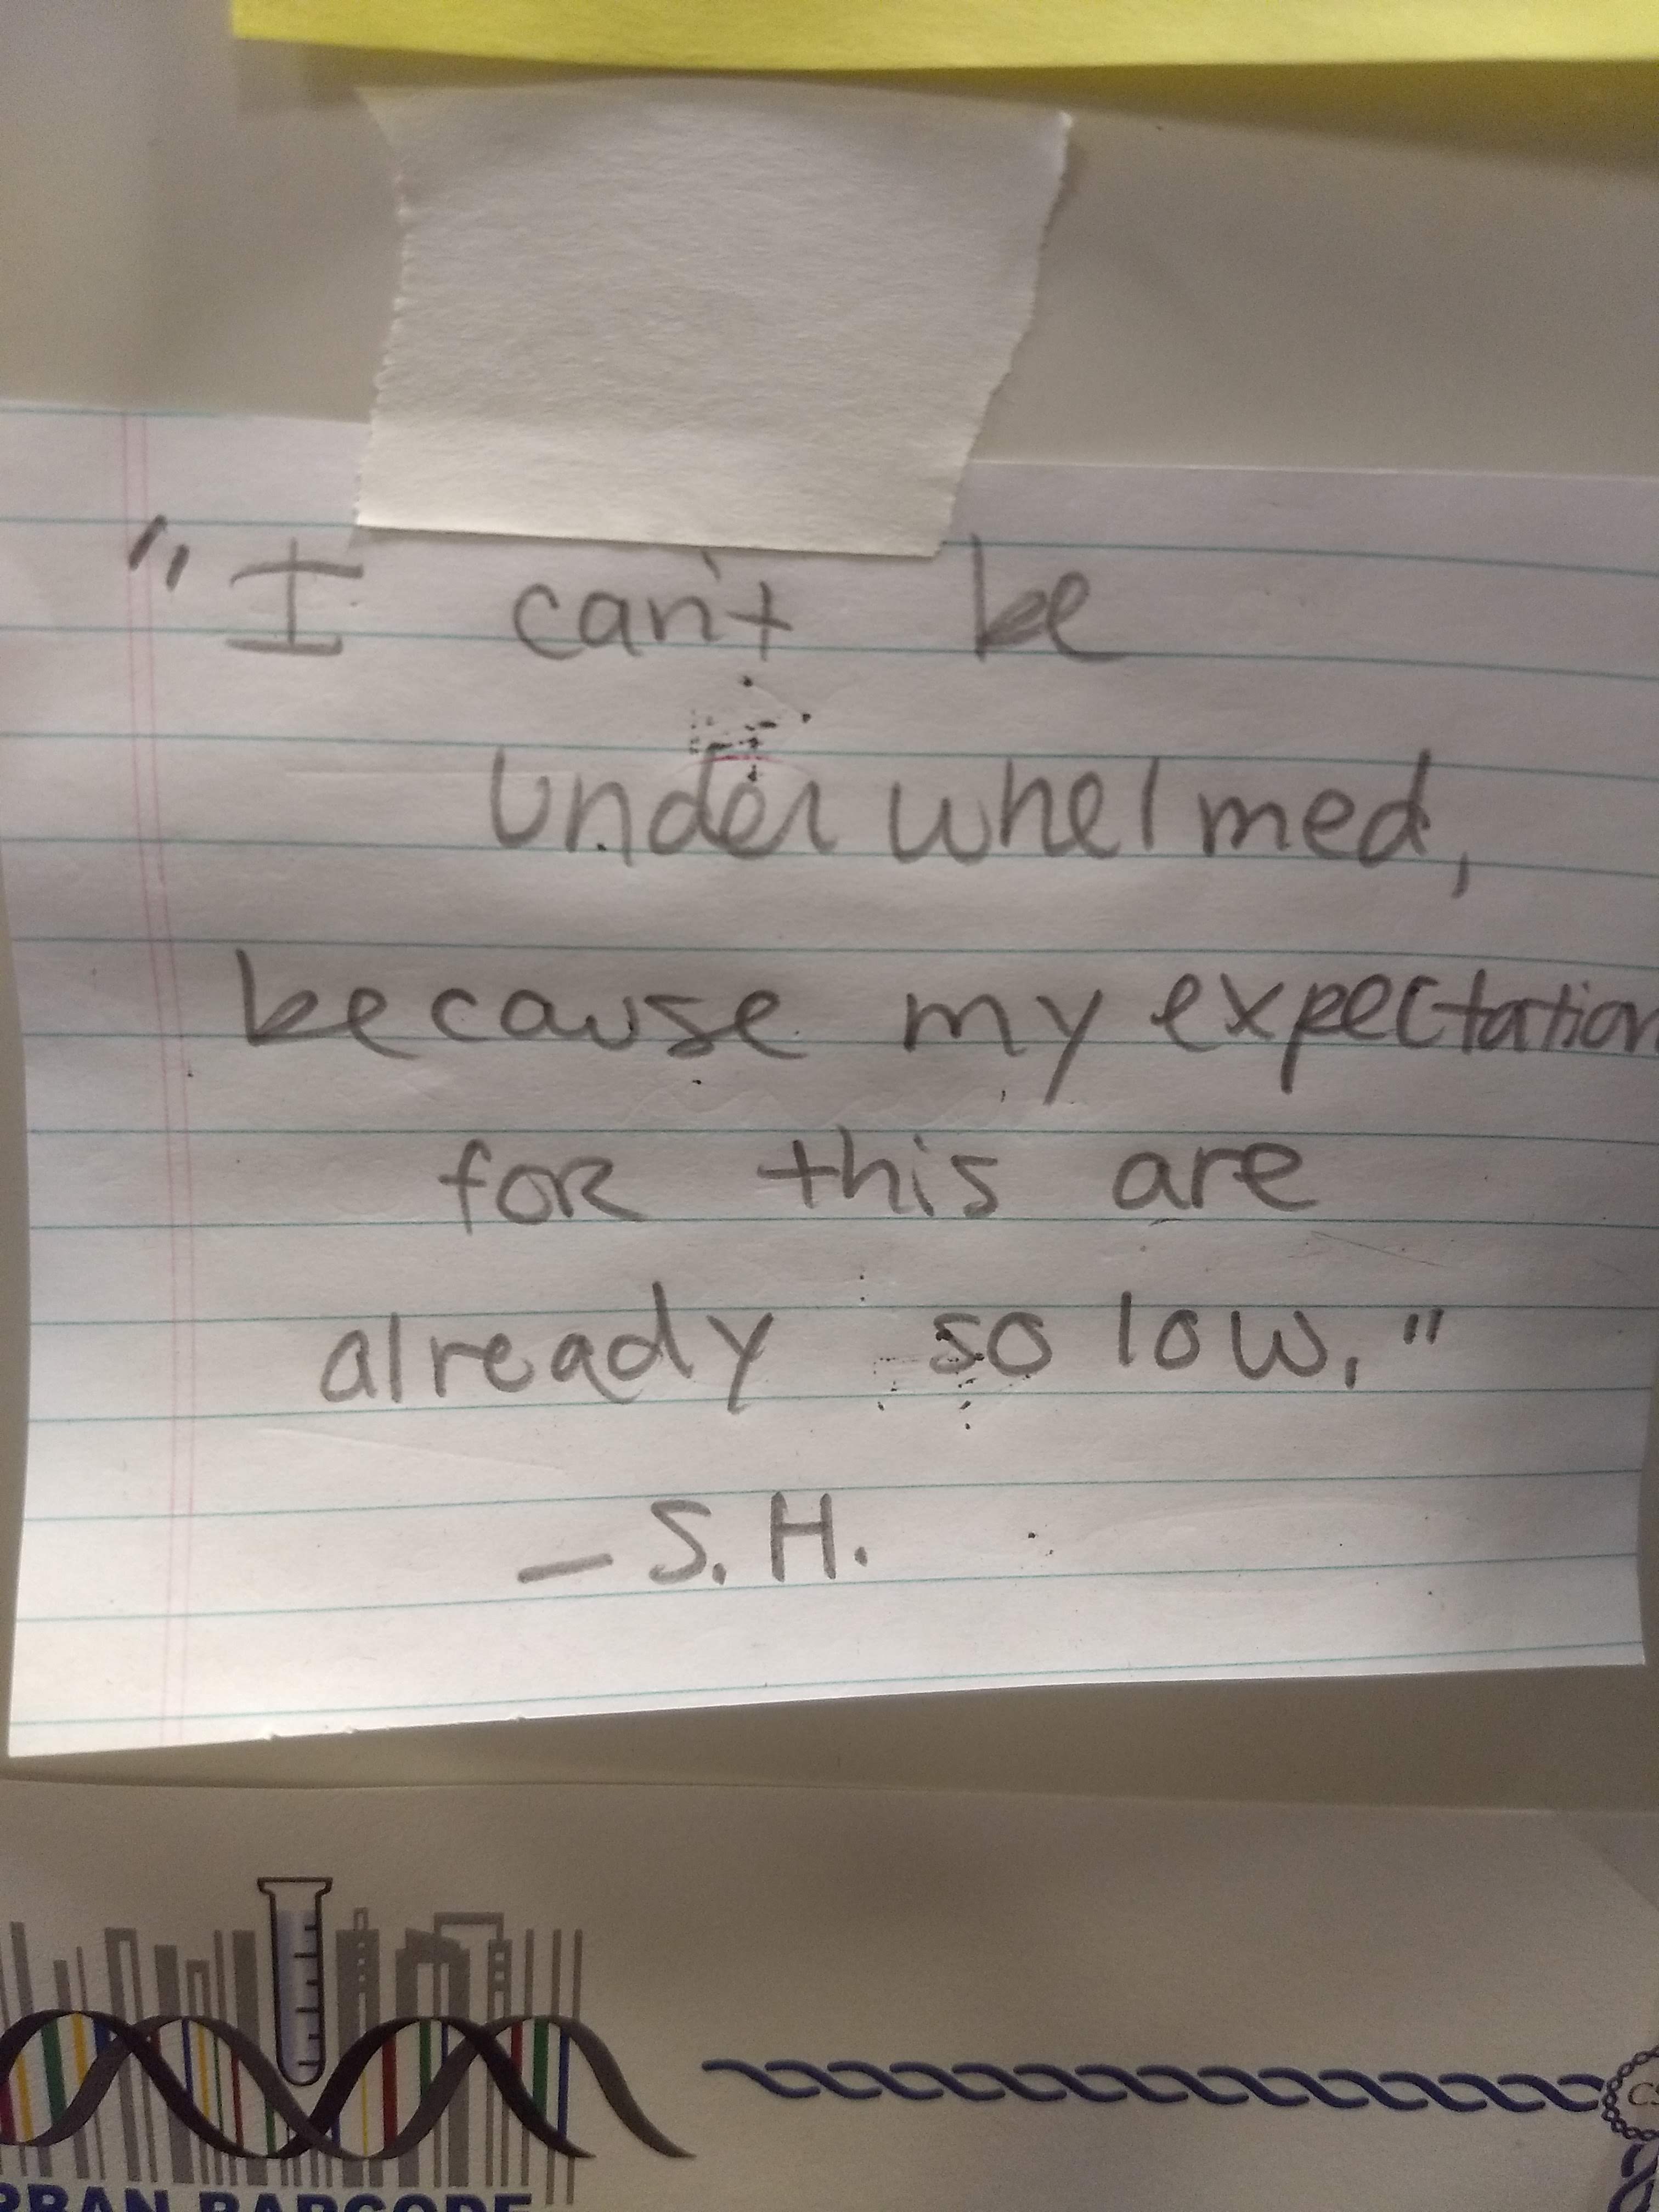 "I can't be
underwhelmed,
because my expectation
for this are
already so low."
— S.H.
CS
RBAN BARCODE